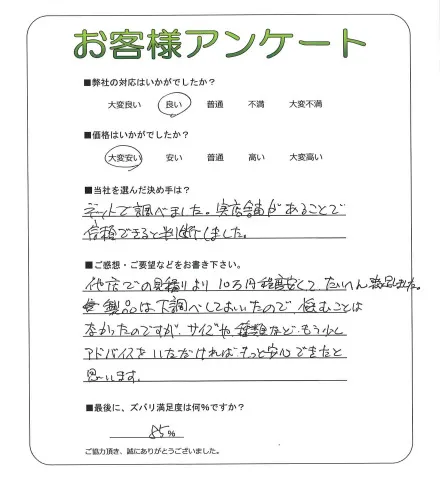 お客様アンケート
■弊社の対応はいかがでしたか?
大変良い 良い 普通 不満 大変不満
■価格はいかがでしたか?
大変安い 安い 普通 高い 大変高い
■当社を選んだ決め手は?
ネットで調べました。実店舗があることで
信頼できると判断しました。
■ご感想・ご要望などをお書き下さい。
他店での見積りより10万円程度安くて たいへん満足しました。
製品は下調べしておいたので 悩むことは
なかったのですが サイズや種類など もう少し
アドバイスをいただければもっと安心できたと
思います。
■最後に、ズバリ満足度は何%ですか?
85%
ご協力頂き、誠にありがとうございました。